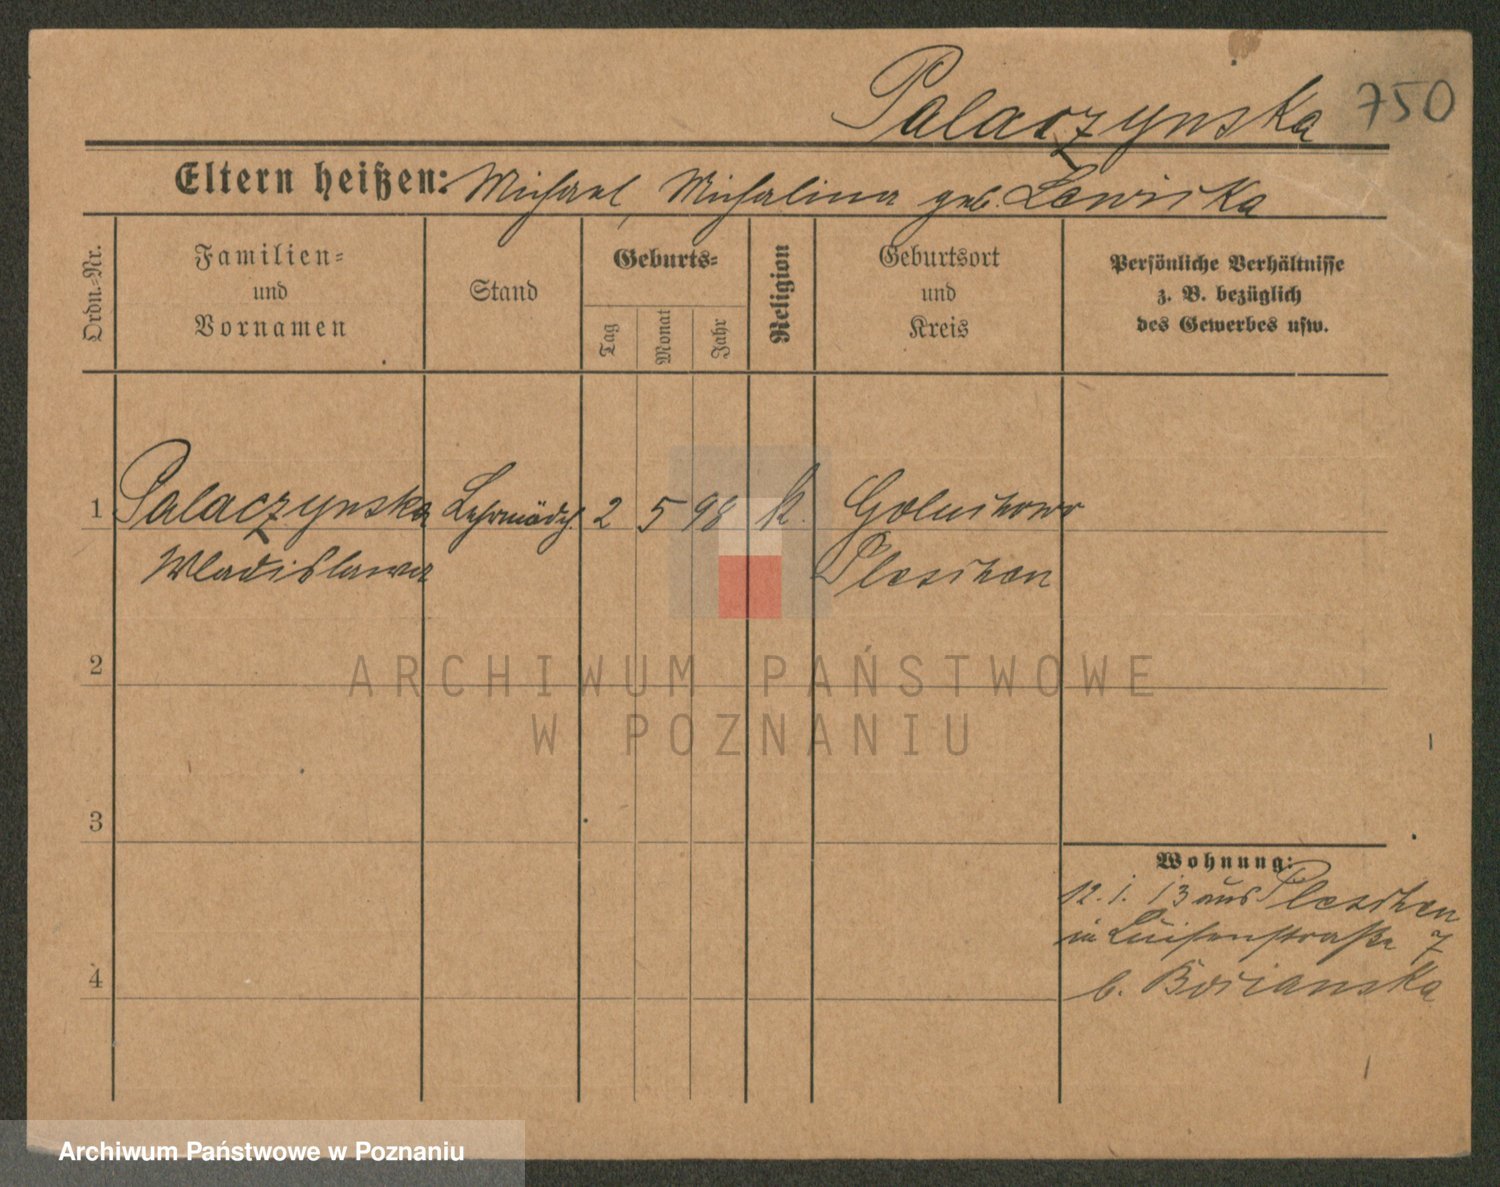 Palaczynska 750
Eltern heißen: Michael, Michalina geb. Lewicka
Ordn.-Nr.
Familien-
und
Vornamen
Stand
Geburts-
Tag
Monat
Jahr
Religion
Geburtsort
und
Kreis
Persönliche Verhältnisse
z. B. bezüglich
des Gewerbes usw.
1 Palaczynska Lehrmädch. 2 5 98 k. Goluchowo
Wladislawa Pleschen
2
ARCHIWUM PAŃSTWOWE
W POZNANIU
3
Wohnung:
12. 1. 13 aus Pleschen
in Luisenstraße 7
4
b. Bocianska
Archiwum Państwowe w Poznaniu